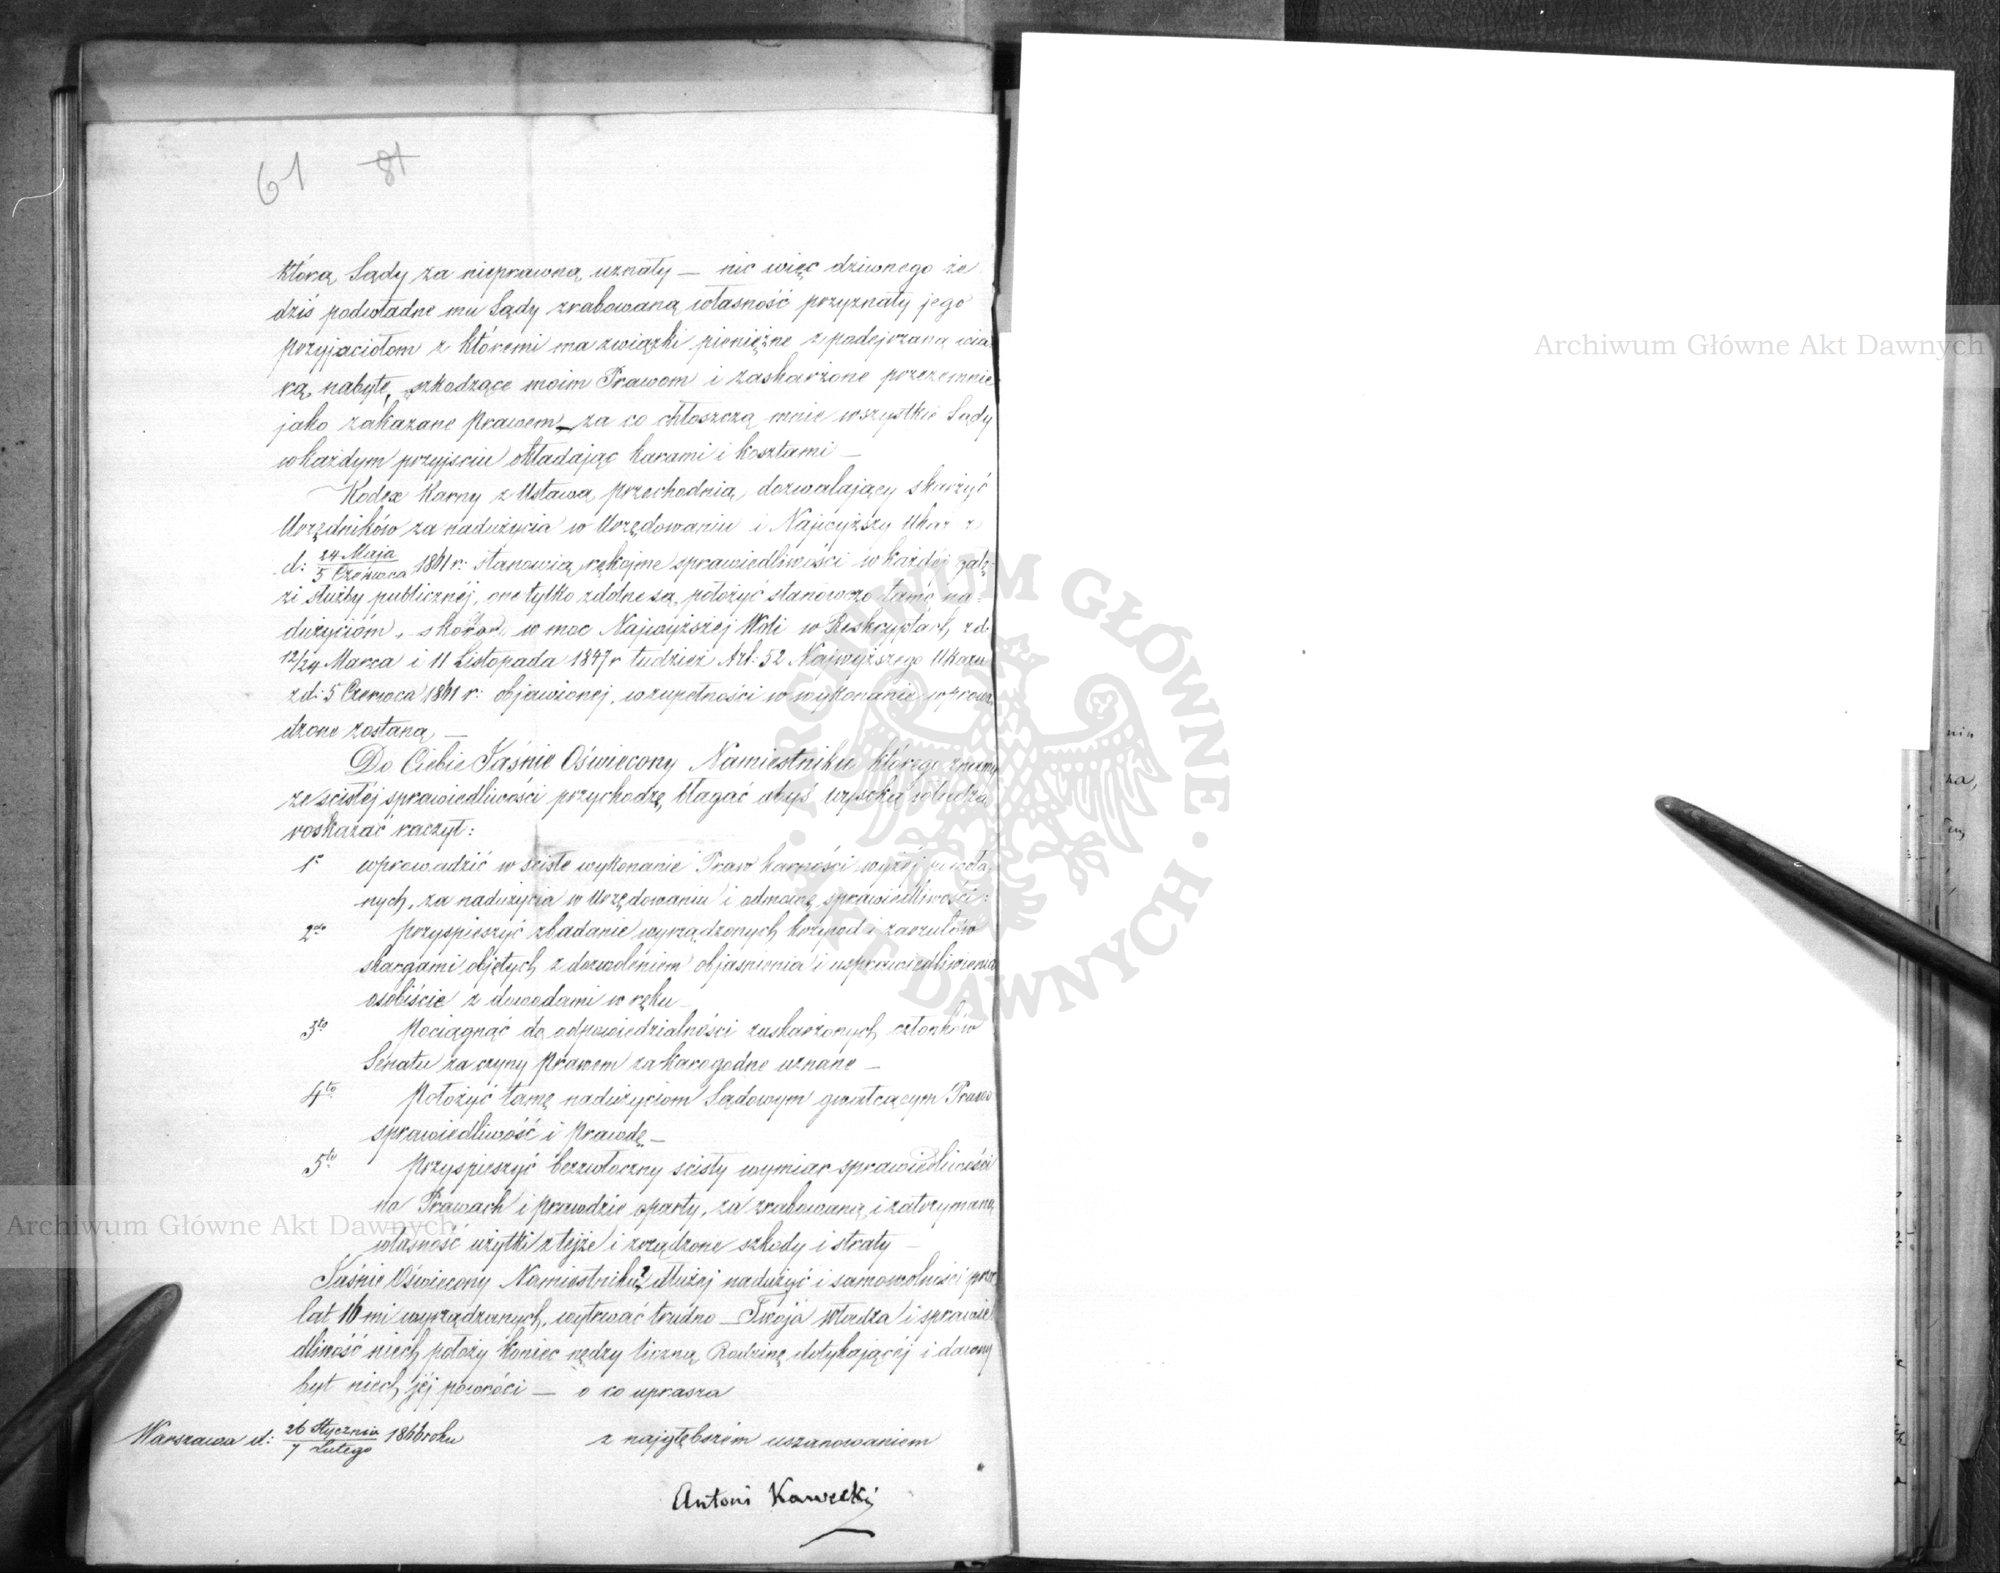 61 81
którą Sądy za nieprawną uznały — nic więc dziwnego że
dziś podwładne mu Sądy zrabowaną własność przyznały jego
przyjaciołom z któremi ma związki pieniężne z podejrzaną wia
rą nabyte, szkodzące moim Prawom i zaskarżone przezemnie
jako zakazane Prawem — za co chłoszczą mnie wszystkie Sądy
w każdym przyjsciu okładając karami i kosztami —
Kodex Karny z Ustawą przechodnią, dozwalający skarżyć
Urzędników za nadużycia w Urzędowaniu i Najwyższy Ukaz z
d: 24 Maja / 5 Czerwca 1861 r: stanowią rękojmę sprawiedliwości w każdej gałę
zi służby publicznéj, one tylko zdolne są położyć stanowczo tamę na=
dużyciom, skoro w moc Najwyższej Woli w Reskryptach z d:
12/24 Marca i 11 Listopada 1847 r tudzież Art: 52 Najwyższego Ukazu
z d: 5 Czerwca 1861 r: objawionej, w zupełności w wykonanie wprowa
dzone zostaną —
Do Ciebie Jaśnie Oświecony Namiestniku którego znamy
ze scisłéj sprawiedliwości przychodzę błagać abyś wysoką władzą
roskazać raczył:
1° wprowadzić w scisłe wykonanie Praw karności wyżéj powoła
nych, za nadużycia w Urzędowaniu i odmowę sprawiedliwości:
2do przyspieszyć zbadanie wyrządzonych krzywd i zarzutów
skargami objętych z dozwoleniem objasnienia i usprawiedliwienia
osobiście z dowodami w ręku —
3to Pociągnąć do odpowiedzialności zaskarżonych członków
Senatu za czyny Prawem za karogodne uznane —
4to Położyć tamę nadużyciom Sądowym gwałcącym Prawo
sprawiedliwość i Prawdę —
5to Przyspieszyć bezzwłoczny scisły wymiar sprawiedliwości
na Prawach i prawdzie oparty, za zrabowaną i zatrzymaną
własność użytki z tejże i zrządzone szkody i straty —
Jaśnie Oświecony Namiestniku! dłużej nadużyć i samowolności przez
lat 16 mi wyrządzanych, wytrwać trudno — Twoja Władza i sprawie
dliwość niech położy koniec nędzy liczną Rodzinę dotykającéj i dawny
byt niech jéj powróci — o co uprasza
Warszawa d: 26 Stycznia / 7 Lutego 1866 roku
z najgłębszém uszanowaniem
Antoni Kawecki
Archiwum Główne Akt Dawnych
Archiwum Główne Akt Dawnych
ARCHIWUM GŁÓWNE AKT DAWNYCH